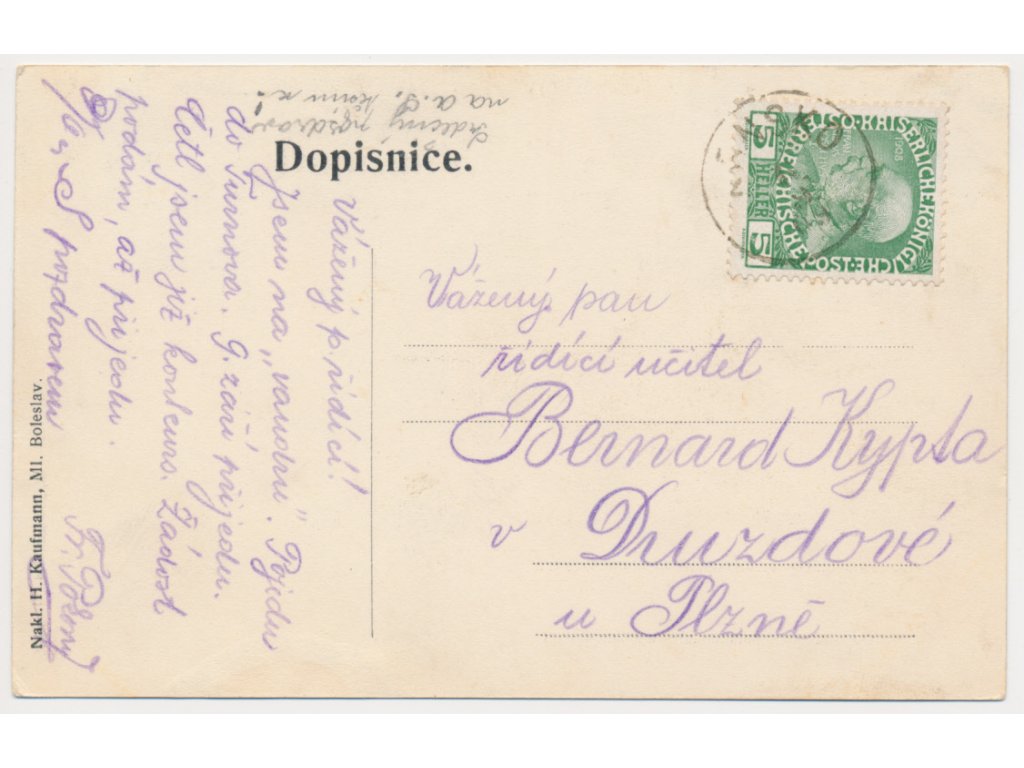 Dopisnice.
Srdečný pozdrav
na
Vážený p. řídící!
Jsem na „vandru". Pojedu
do Turnova. 9. září přijedu.
Četl jsem již konkurs. Žádost
podám, až přijedu.
S pozdravem
Fr.
Nakl. H. Kaufmann, Ml. Boleslav.
Vážený pan
řídící učitel
Bernard Kypta
v Druzdové
u Plzně
KAISERLICHEKÖNIGLICHE
ÖSTERREICHISCHE POST
1908
5 HELLER 5